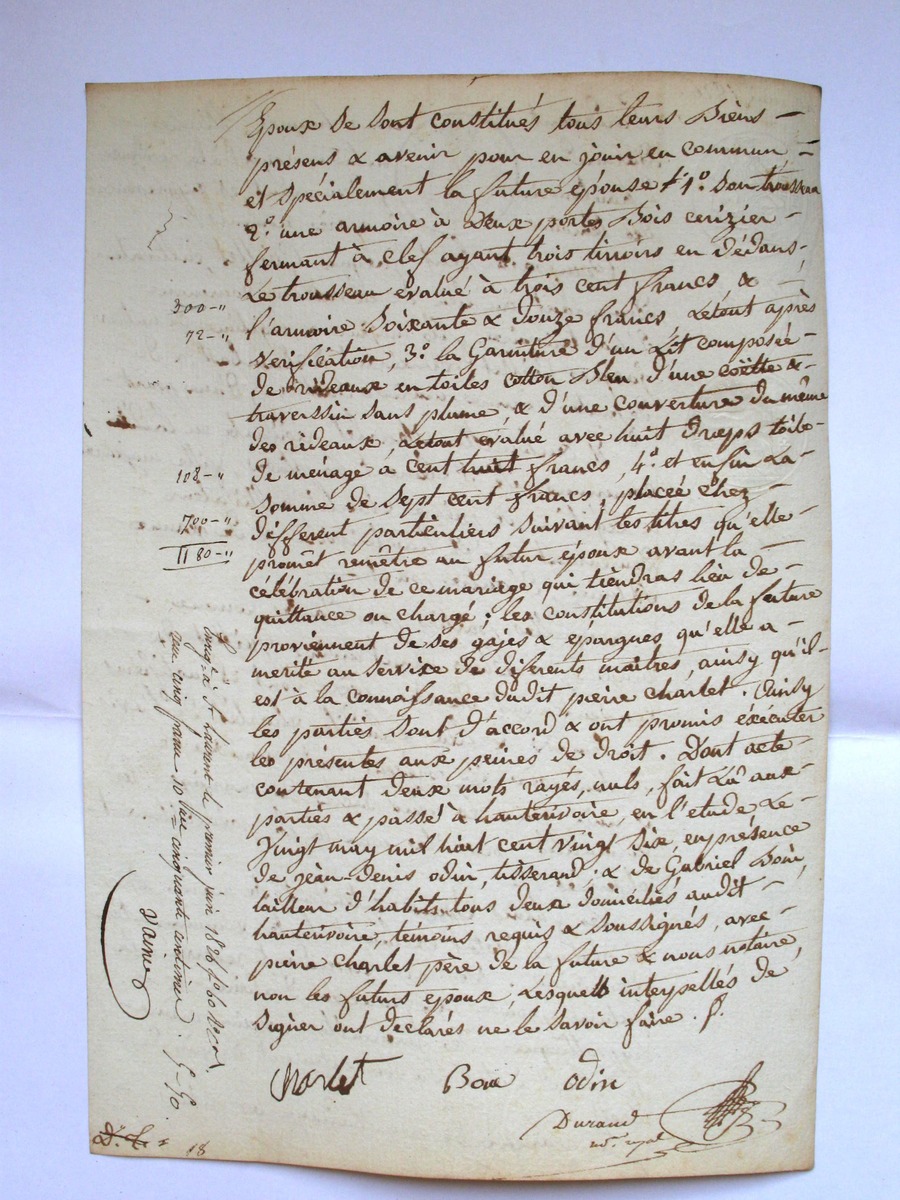 Epoux se sont constitués tous leurs Biens —
présens & avenir pour en jouir en commun —
et spécialement la future épouse 1° son trousseau
2° une armoire à deux portes Bois cerizier —
fermant à clef ayant trois tirroirs en dédans,
Le trousseau evalué à trois cent francs, & —
300 - "
l'armoire Soixante & douze francs Letout après
72 - "
verification, 3° la Garniture d'un Lit composée —
de rideaux en toiles cotton Bleu, d'une coëtte &
traverssin sans plume & d'une couverture du même
des rideaux, Letout évalué avec huit draps toile
de ménage à cent huit francs, 4° et enfin La —
108 - "
somme de Sept cent francs, placeé chez —
700 - "
différent particuliers suivant les titres qu'elle —
1180 - "
promêt remêtre au futur épouse avant la —
célébration de ce mariage qui tiendras lieu de —
quittance ou chargé; les constitutions de la future
proviennent de ses gajes & epargnes qu'elle a —
merité au service de diferents maitres, ainsy qu'il —
est à la connaissance dudit pierre Charlet. Ainsy
les partiés sont d'accord & ont promis éxécuter
les présentes aux peines de droit. Dont acte —
contenant deux mots rayés, nuls, fait Lû aux —
partiés & passé à hauterivoire, en l'etude Le —
Vingt may mil huit cent vingt Six, en présence
de jean-Denis odin, tisserand, & de Gabriel
tailleur d'habits, tous deux domiciliés audit —
hauterivoire, témoins requis & Soussignés, avec —
pierre Charlet père de la future & nous notaire,
non les futurs epoux, Lesquels interpellés de
Signer ont déclarés ne le savoir faire. /.
Charlet odin
Durand
no.re royal
à St Laurent le premier juin 1826
cinq francs 10.e cinquante centimes. 5-50.
18